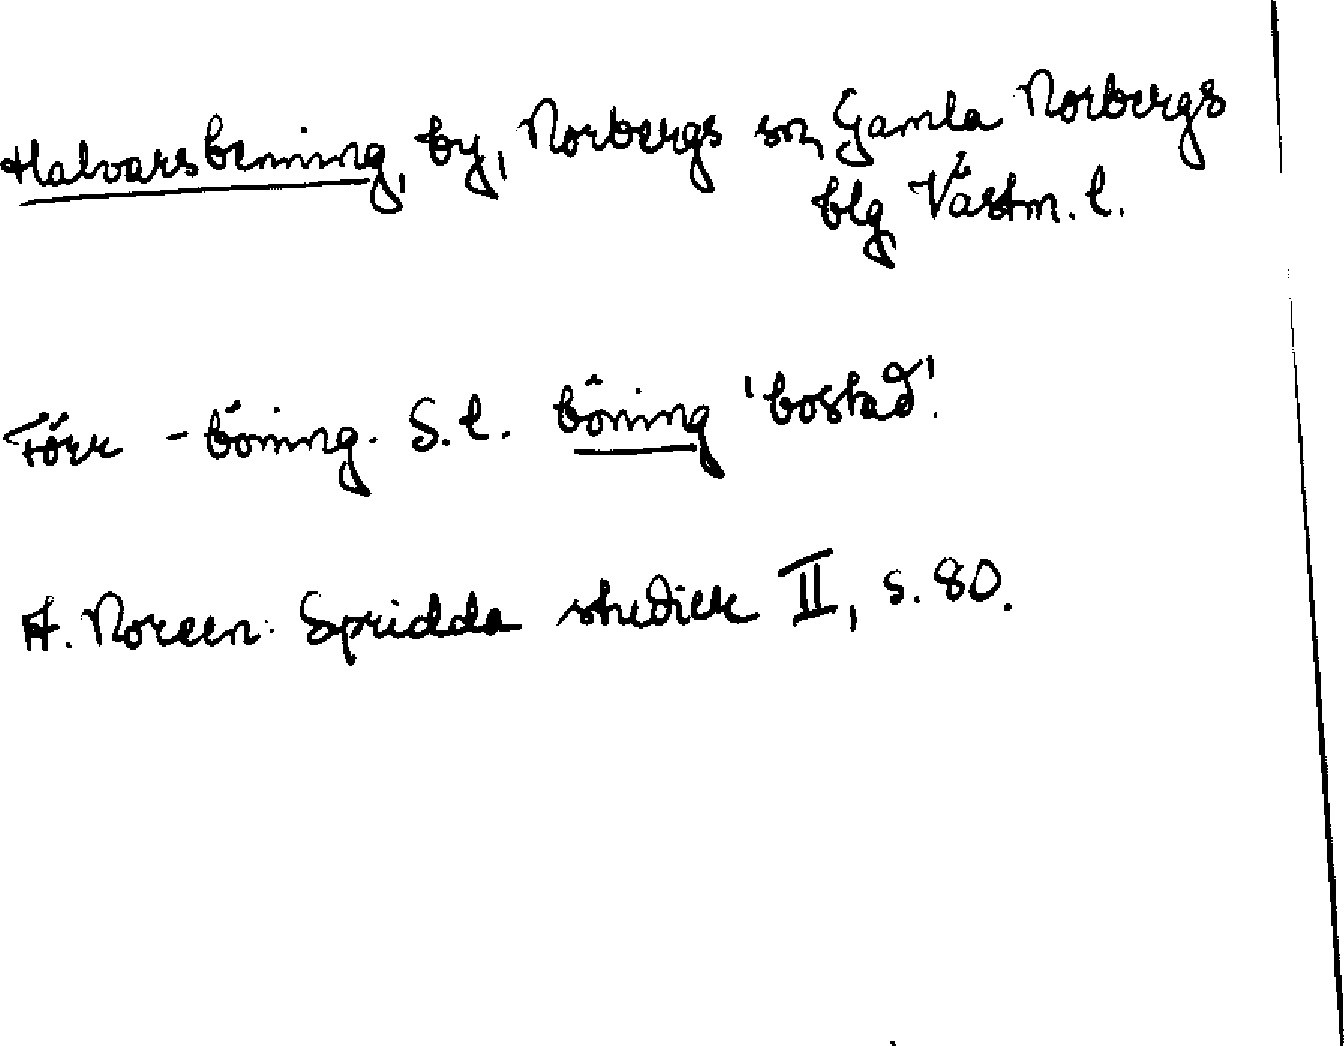 Halvarsbenning, by, Norbergs sn, Gamla Norbergs
blg Västm. l.
Förr -böning. S.l. böning 'bostad'.
A. Noreen: Spridda studier II, s. 80.